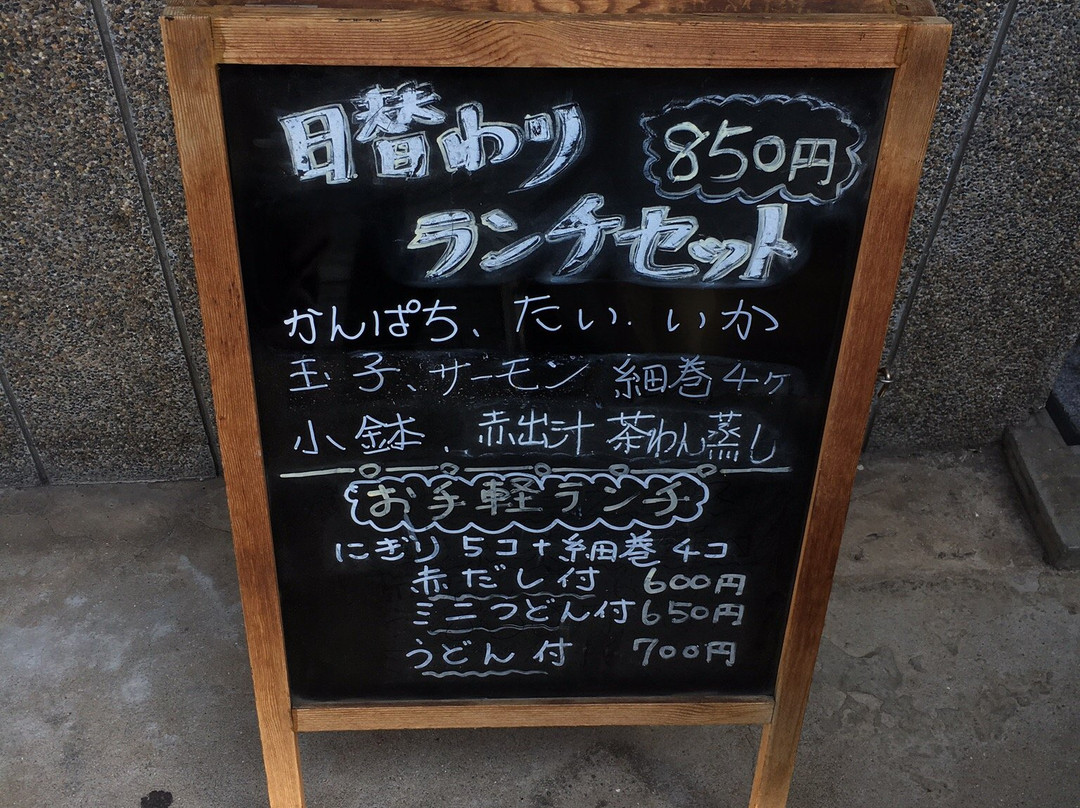 日替わり 850円
ランチセット
かんぱち、たい、いか
玉子、サーモン 細巻4ヶ
小鉢、赤出汁 茶わん蒸し
お手軽ランチ
にぎり5コ+細巻4コ
赤だし付 600円
ミニうどん付650円
うどん付 700円